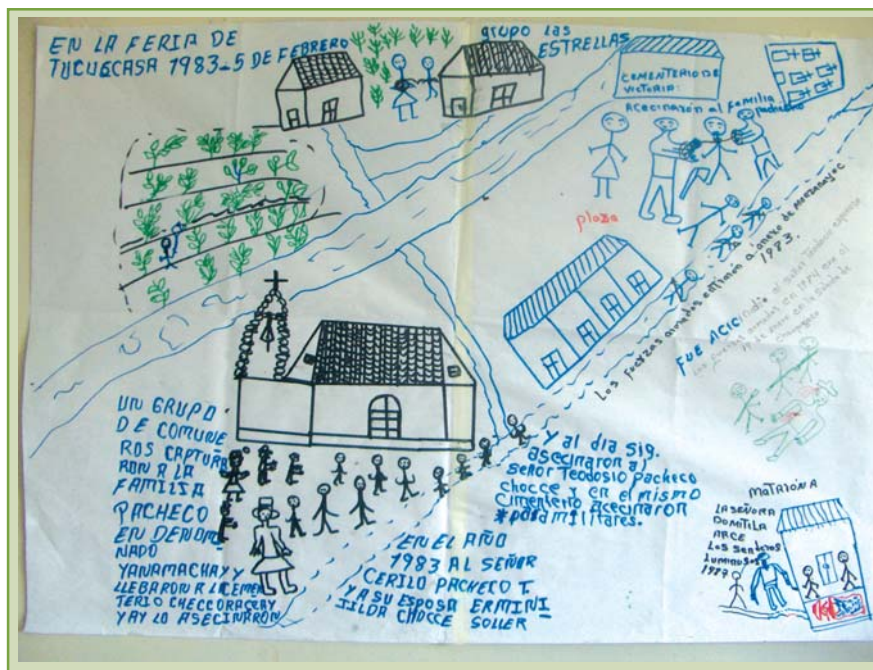 EN LA FERIA DE
TUCUGCASA 1983-5 DE FEBRERO
grupo las
ESTRELLAS
CEMENTERIO DE
VICTORIA:
ACECINARÓN al familia
pacheco
plaza
Los fuerzas armados entraron a anexo de
1983.
FUE ACIC
el señor Teodosio
los fuerzas armados en 1984
UN GRUPO
DE COMUNE
ROS CAPTURA
RON A LA
FAMILIA
PACHECO
EN DENOMI
NADO
YANAMACHAY Y
LLEBARON A LA CEMEN
TERIO CHECCORACCAY
Y AY LO ASECINARÓN
Y al dia sig.
asecinaron al
señor Teodosio Pacheco
chocce y en el mismo
Cimenterio Acecinaron
*para militares.
EN EL AÑO
1983 AL SEÑOR
CERILO PACHECO T.
Y A SU ESPOSA ERMINI
JILDA CHOCCE SOLLER
MATARÓN A
LA SEÑORA
DOMITILA
ARCE
Los senderos
luminosos